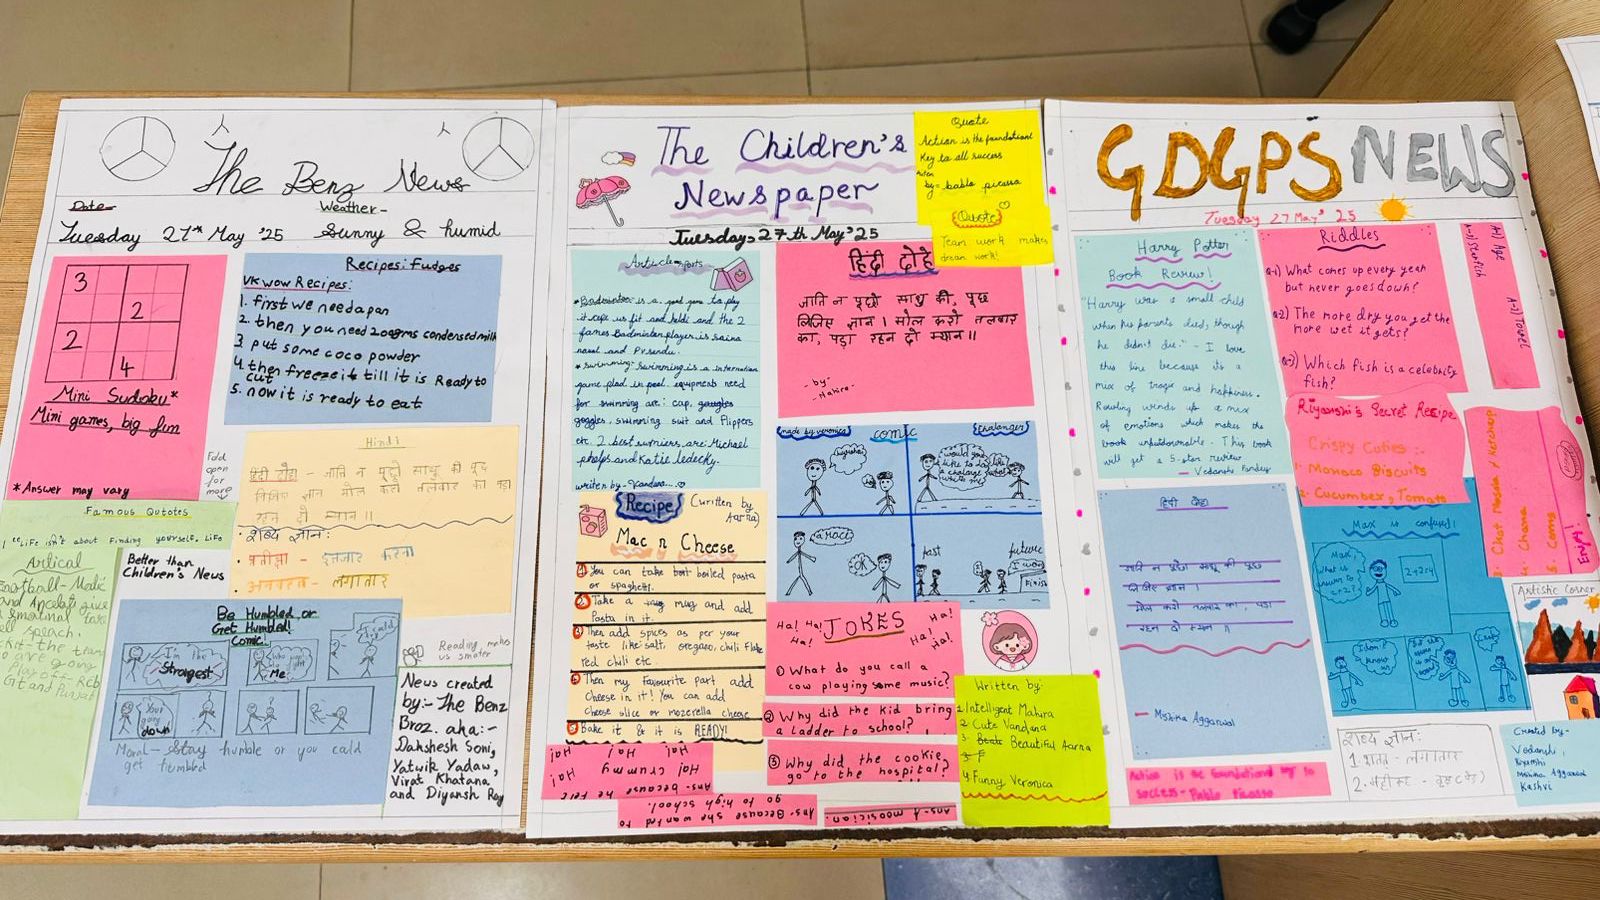 The Benz News
Date
Weather-
Tuesday 27th May '25 Sunny & humid
3
2
2
4
Mini Sudoku*
Mini games, big fun
*Answer may vary
Recipes: Fudges
VK wow Recipes:
1. first we need a pan
2. then you need 200gms condensed milk
3 put some coco powder
4. then freeze it till it is Ready to
cut
5. now it is ready to eat
Fold
open
for
more
Hindi
हिंदी दोहा - जाति न पूछो साधु की पूछ
लिजिए ज्ञान मोल करो तलवार का पडा
रहन दो म्यान ॥
शब्द ज्ञान:
प्रतीक्षा - इंतजार करना
अनवरत - लगातार
Famous Qutotes
"Life isn't about finding yourself. Life
Artical
Football-
and Ancelotti give
emotional
speach.
the team
are going
play off - RCB
GT and Punjab
Better than
Children's News
Be Humbled or
Get Humbled!
Comic!
I'm the
Strongest
Me
Your going
down
Moral - Stay humble or you could
get humbled
Reading makes
us smarter
News created
by:- The Benz
Broz. aka:-
Dakshesh Soni,
Yatwik Yadaw,
Virat Khatana
and Diyansh Roy
The Children's
Newspaper
Tuesday, 27th May '25
Quote
Action is the foundationl
Key to all success
by= bablo picasso
Quote
Team work makes
dream work!
Article - Sports
Badminton is a good game to play
it keps us fit and heldi and the 2
fames Badminton player is saina
nawal and P.v sendu.
swimming:- swimming is a internation
game plad in pool. equipments need
for swimming are: cap, googles
goggles, swimming suit and flippers
etc. 2 best swimers are: Michael
phelps and Katie ledecky.
writen by - Vandana...
हिंदी दोहे
जाति न पूछो साधु की, पूछ
लिजिए ज्ञान। मोल करो तलवार
का, पड़ा रहन दो म्यान॥
-by-
-Mahira-
Recipe
(written by
Aarna)
Mac n Cheese
1 You can take boil boiled pasta
or spaghetti.
2 Take a mug mug and add
Pasta in it.
3 Then add spices as per your
taste like salt, oregano, chili flake
red chili etc.
4 Then my favourite part add
Cheese in it! You can add
Cheese slice or mozerella cheese
5 Bake it & it is READY!
made by veronica
comic
Chalanger
would you
like to do
a chalange
race
OK
past
future
I won
finish
Ha! Ha! Ha!
JOKES
Ha! Ha! Ha!
1 What do you call a
cow playing some music?
2 Why did the kid bring
a ladder to school?
3 Why did the cookie
go to the hospital?
Ans- because he felt
crummy Ha! Ha! Ha! Ha!
Ans- Because she wanted to
go to high school.
Ans- A moosician.
Written by:
1 Intelligent Mahira
2 Cute Vandana
3. Beauti Beautiful Aarna
4. Funny Veronica
GDGPS NEWS
Tuesday 27 May' 25
Harry Potter
Book Review!
"Harry was a small child
when his parents died, though
he didn't die." - I love
this line because its a
mix of tragic and happiness.
Rowling winds up a mix
of emotions which makes the
book unputdownable. This book
will get a 5-star review
- Vedanshi Pandey
Riddles
Q-1) What comes up every year
but never goes down?
Q-2) The more dry you get the
more wet it gets?
Q-3) Which fish is a celebrity
fish?
A-1) Age
A-3) Starfish
A-2) Towel
Riyanshi's Secret Recipe
Crispy Cuties :-
1. Monaco Biscuits
2. Cucumber, Tomato
Chat Masala & Ketchup
Chana
Corns
Enjoy!
हिंदी दोहा
जाति न पूछो साधु की पूछ
लिजिए ज्ञान।
मोल करो तलवार का, पड़ा
रहन दो म्यान ॥
- Mishka Aggarwal
Action is the foundational key to
success - Pablo Picasso
Max is confused!
Max,
what is
2+2?
I don't
know
Artistic Corner
शब्द ज्ञान:
1. लगातार
2.
Created by-
Vedanshi,
Riyanshi
Mishka Aggarwal
Kashvi